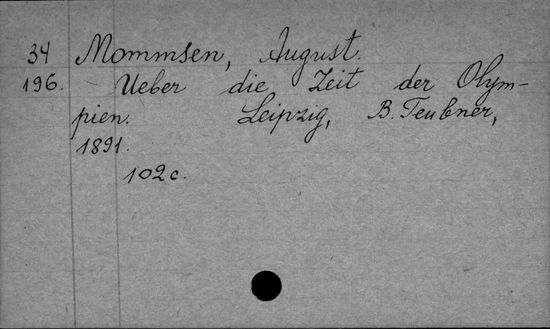 34 Mommsen, August.
196. Ueber die Zeit der Olym-
pien. Leipzig, B. Teubner,
1891.
102 c.